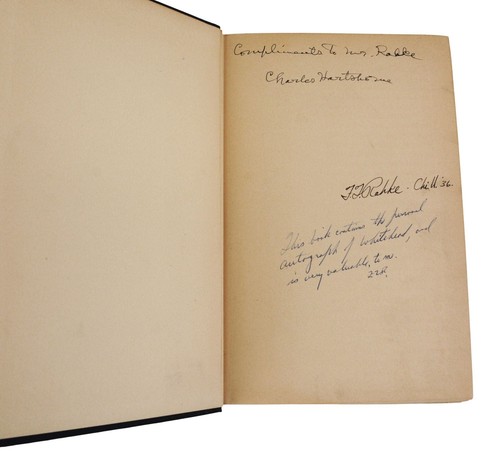 Compliments to Mr. Rahke
Charles Hartshorne
Rahke - Chi. Ill '36.
This book contains the personal
autograph of Whitehead, and
is very valuable, to me.